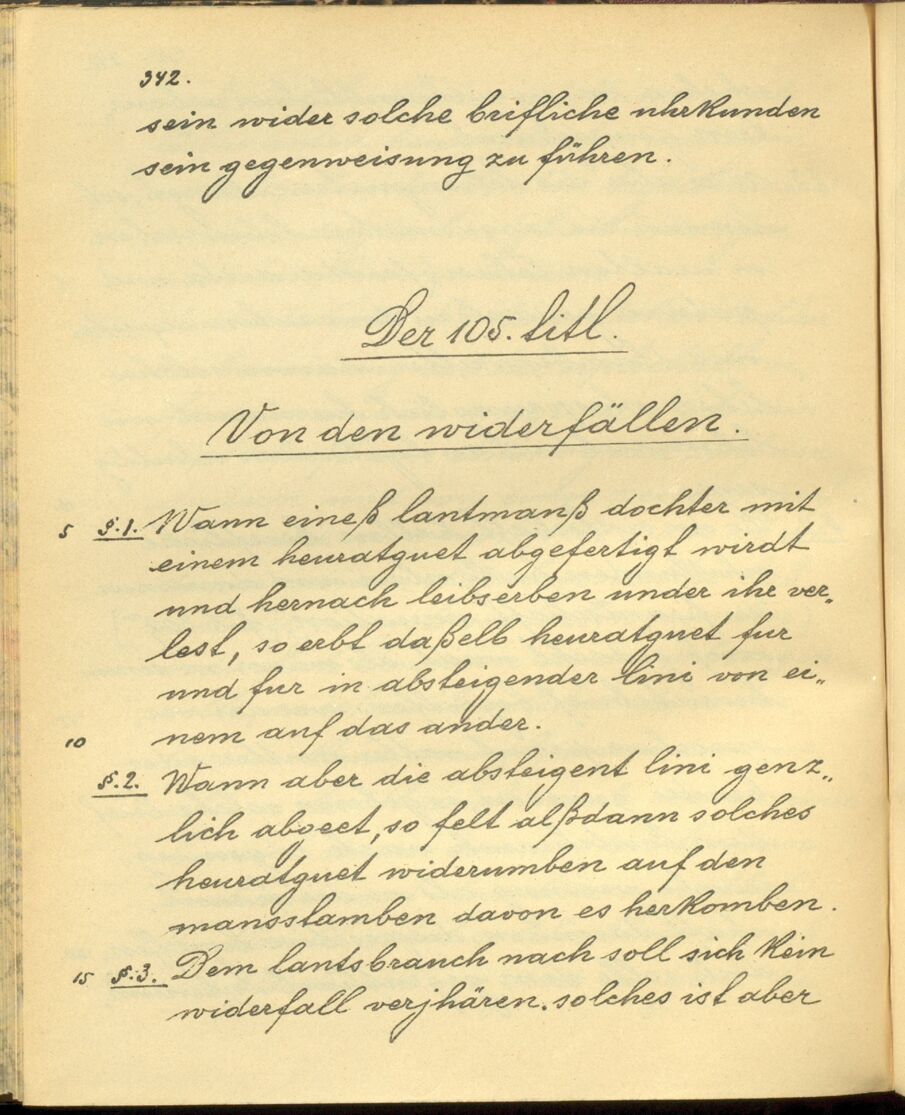 342.
sein wider solche brifliche uhrkunden
sein gegenweisung zu führen.
Der 105. titl.
Von den widerfällen.
5 §.1. Wann eineß lantmanß dochter mit
einem heuratguet abgefertigt wirdt
und hernach leibserben under ihr ver„
lest, so erbt daßelb heuratguet fur
und fur in absteigender lini von ei„
10 nem auf das ander.
§.2. Wann aber die absteigent lini genz„
lich abgeet, so felt alßdann solches
heuratguet widerumben auf den
mansstamben davon es herkomben.
15 §.3. Dem lantsbrauch nach soll sich kein
widerfall verjhären. solches ist aber